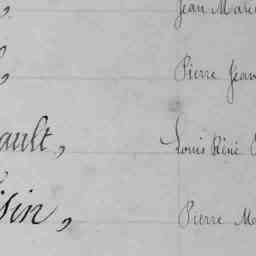 , Jean Mari
, Pierre Jean
ault, Louis Réné
sin, Pierre M